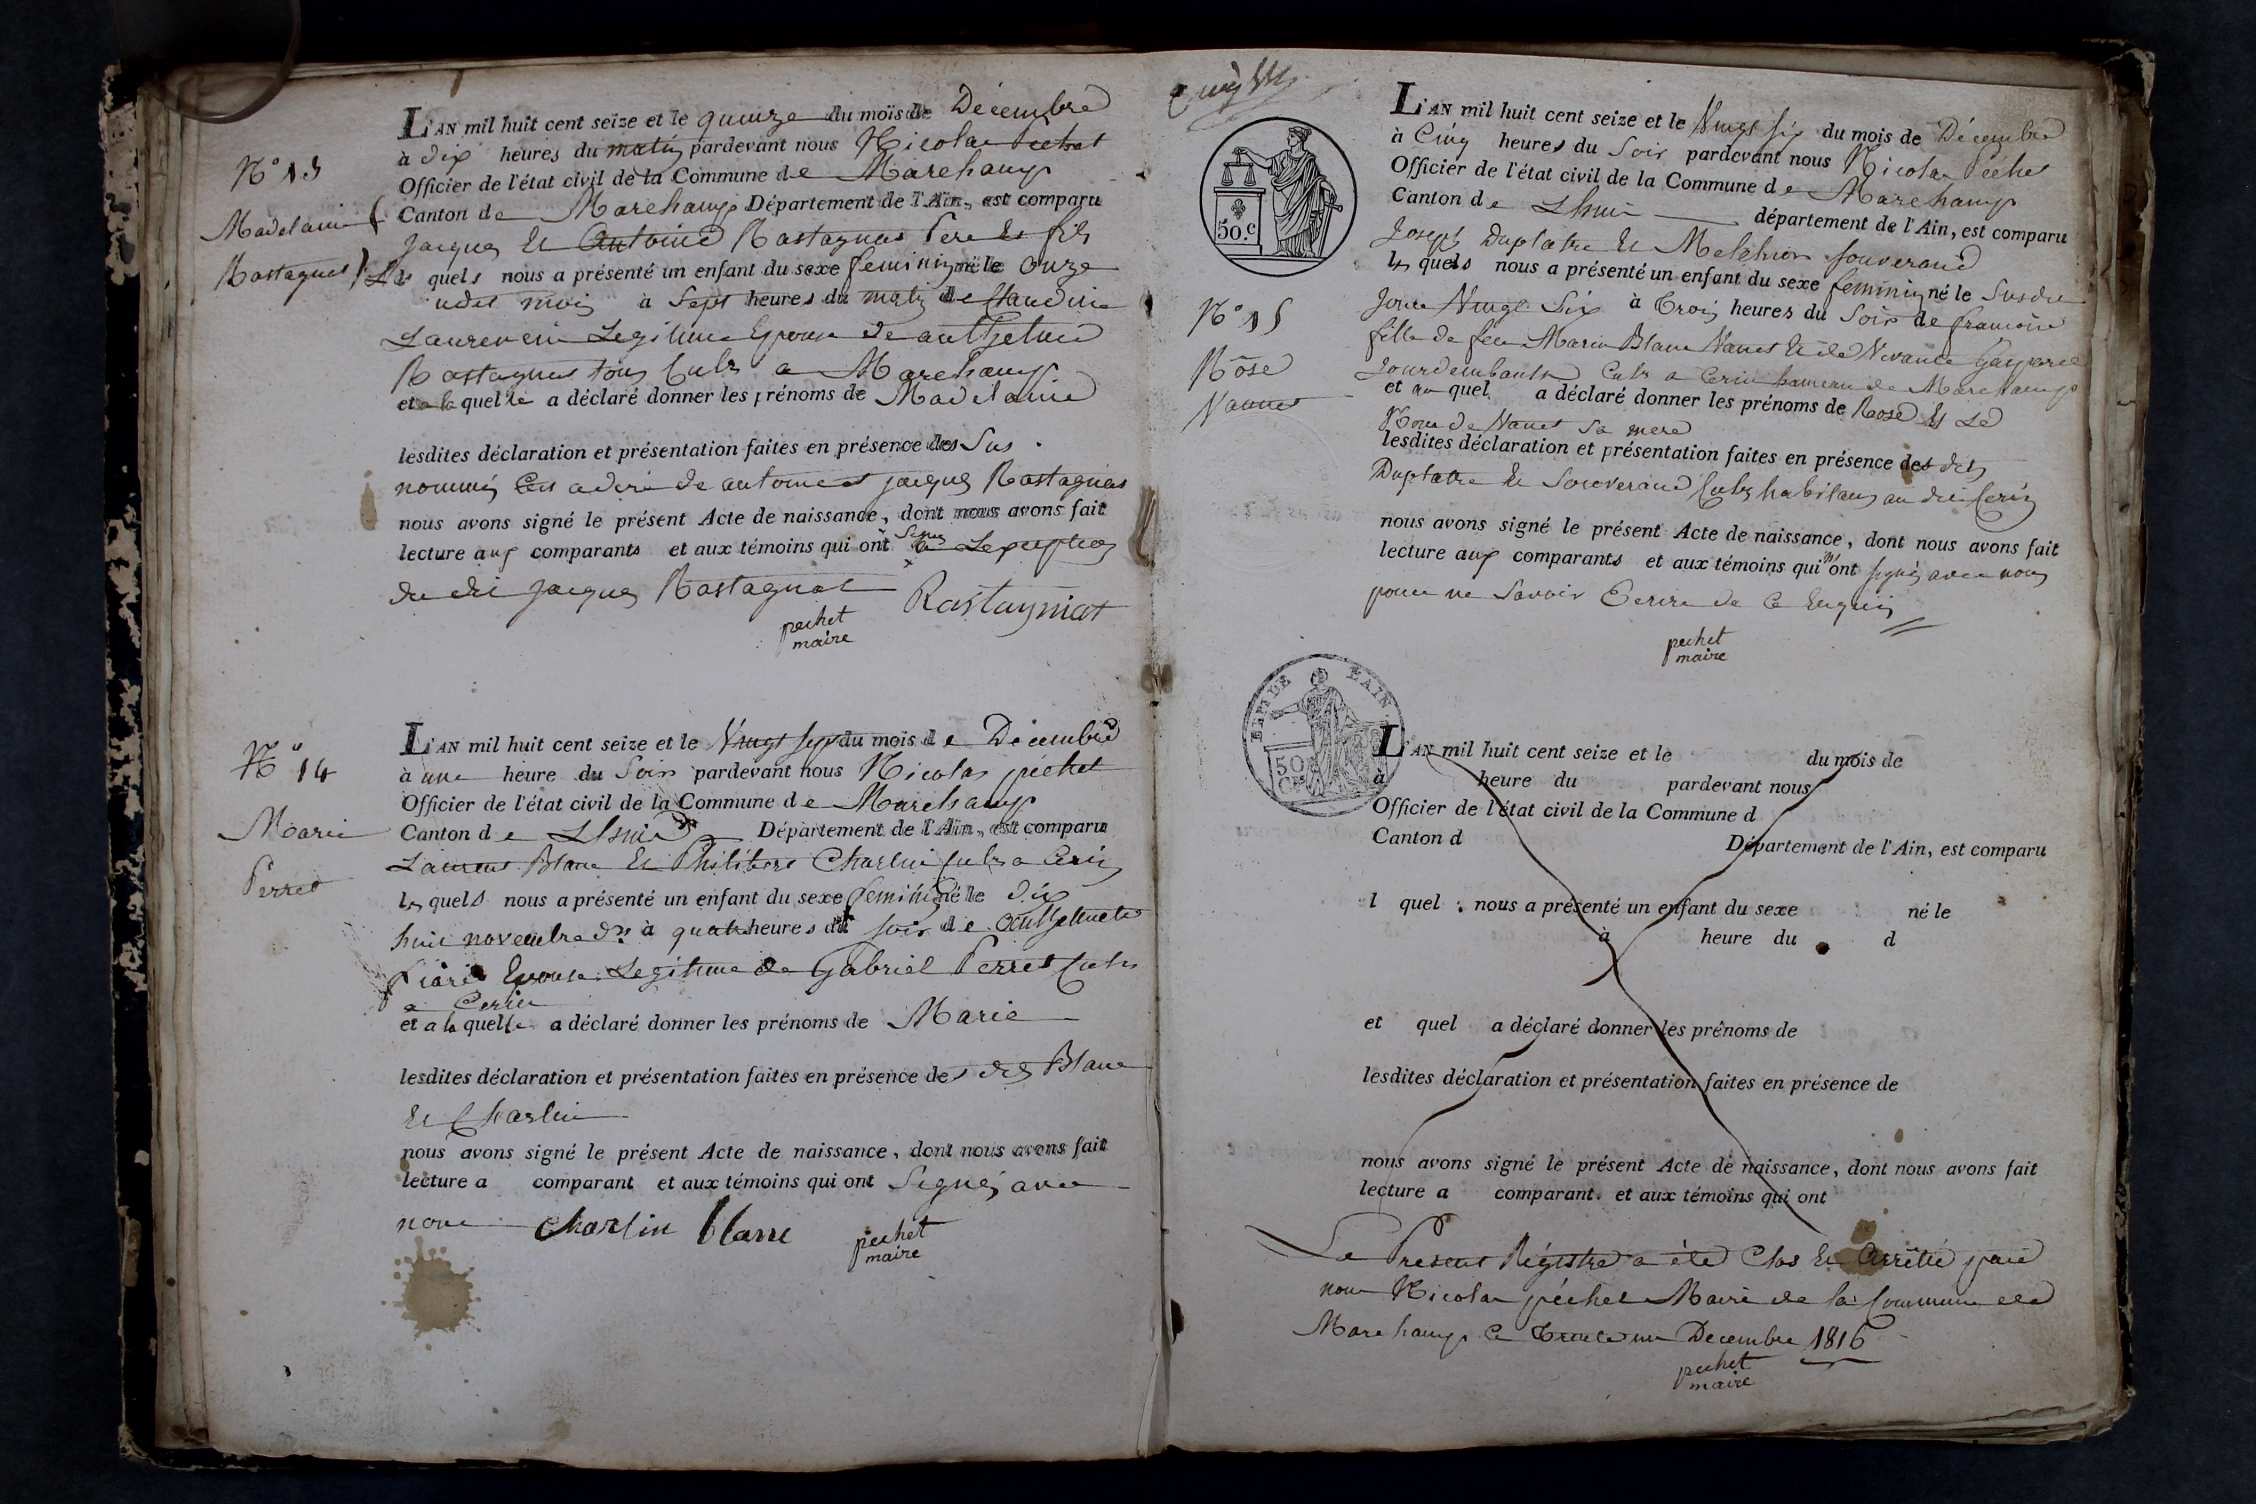 N° 13
Madelaine
Rastagnat
L'AN mil huit cent seize et le quinze du mois de Décembre
à dix heures du matin pardevant nous Nicolas Pechet
Officier de l'état civil de la Commune de Marchamp
Canton de Marchamp Département de l'Ain, est comparu
Jacques Et Antoine Rastagnat Pere Et fils
Les quels nous a présenté un enfant du sexe feminin né le onze
udit mois à Sept heures du matin de Claudine
Laurencin Legitime Epouse de anthelme
Rastagnat tous Cultrs a Marchamp
et a la quelle a déclaré donner les prénoms de Madelaine
lesdites déclaration et présentation faites en présence des Sus
nommés de antoine et jacques Rastagnat
nous avons signé le présent Acte de naissance, dont nous avons fait
lecture aux comparants et aux témoins qui ont Signé a Lexception
du dit Jacques Rastagnat
Rastayniat
pechet
maire
N° 14
Marie
Perret
L'AN mil huit cent seize et le Vingt sept du mois de Décembre
à une heure du Soir pardevant nous Nicolas péchet
Officier de l'état civil de la Commune de Marchamp
Canton de Lhuis Département de l'Ain, est comparu
Laurent Blanc Et Philibert Charlin Cultrs a Cerin
les quels nous a présenté un enfant du sexe feminin né le dix
huit novembre dr à quatre heures du soir de Anthelmette
Epouse Legitime de Gabriel Perret Cultr
a Cerin
et a la quelle a déclaré donner les prénoms de Marie
lesdites déclaration et présentation faites en présence des dits Blanc
Et Charlin
nous avons signé le présent Acte de naissance, dont nous avons fait
lecture a comparant et aux témoins qui ont Signés avec
nous Charlin blanc
pechet
maire
50.c
N° 15
Rose
Vannet
L'AN mil huit cent seize et le Vingt six du mois de Décembre
à Cinq heures du Soir pardevant nous Nicolas Péchet
Officier de l'état civil de la Commune de Marchamp
Canton de Lhuis département de l'Ain, est comparu
Joseph Duplatre Et Melchior souverand
les quels nous a présenté un enfant du sexe feminin né le Susdit
Jour Vingt Six à Trois heures du Soir de francoise
fille de feu Marin Blanc Vannet Et de Vivante Gasparde
Cultr a Cerin hameau de Marchamp
et au quel a déclaré donner les prénoms de Rose Et Le
Nom de Vanet Sa mere
lesdites déclaration et présentation faites en présence des dits
Duplatre Et Souverand Cultrs habitans au dit Cerin
nous avons signé le présent Acte de naissance, dont nous avons fait
lecture aux comparants et aux témoins qui n'ont signé avec nous
pour ne Savoir Ecrire de ce Enquis
pechet
maire
DEPT DE L'AIN
50
CES
L'AN mil huit cent seize et le du mois de
à heure du pardevant nous
Officier de l'état civil de la Commune d
Canton d Département de l'Ain, est comparu
l quel nous a présenté un enfant du sexe né le
à heure du d
et quel a déclaré donner les prénoms de
lesdites déclaration et présentation faites en présence de
nous avons signé le présent Acte de naissance, dont nous avons fait
lecture a comparant et aux témoins qui ont
Le Present Régistre a été Clos Et Arrêtté par
nous Nicolas péchet Maire de la Commune de
Marchamp ce Trente un Decembre 1816
pechet
maire